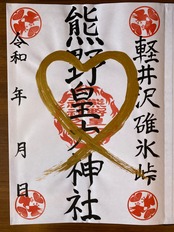 軽井沢碓氷峠
熊野皇大神社
令和 年 月 日